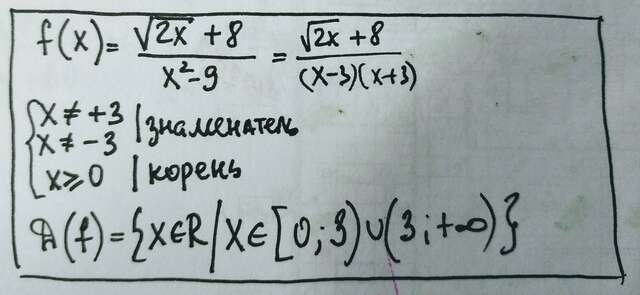 f(x) = (√2x + 8)/(x² - 9) = (√2x + 8)/((x-3)(x+3))
{ x ≠ +3 | знаменатель
x ≠ -3
x ⩾ 0 | корень
D(f) = {x ∈ R | x ∈ [0; 3) ∪ (3; +∞)}